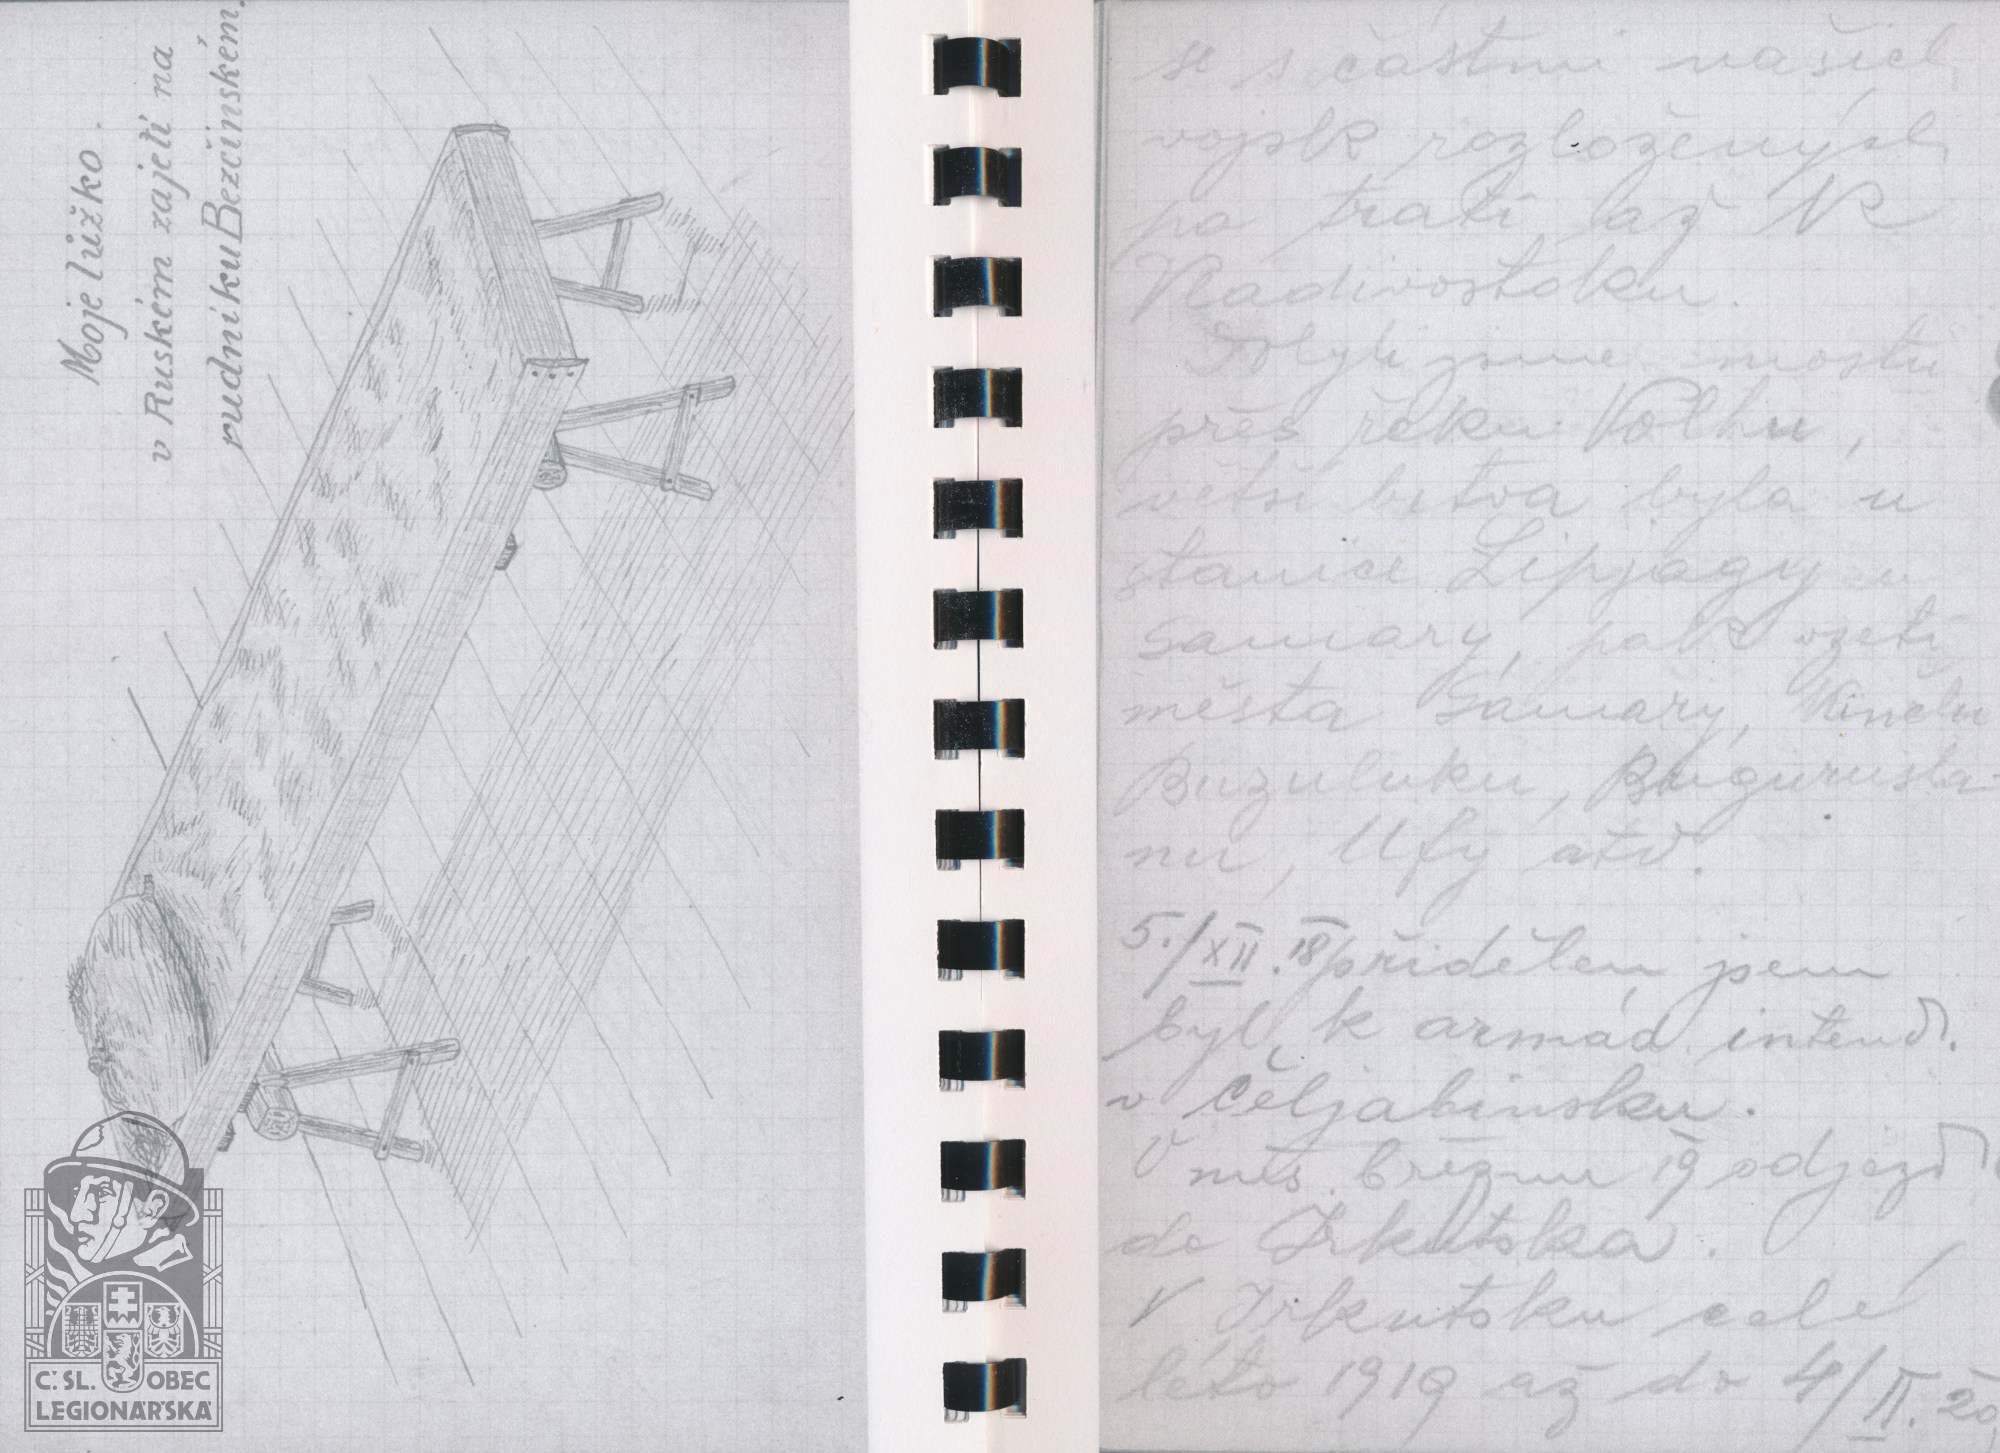 Moje lůžko.
v Ruském zajetí na
rudníku Bezčinském.
se s částmi našich
vojsk rozložených
po trati až k
Vladivostoku.
jsme mostu
přes řeku Volhu,
větší bitva byla u
stanice Lipjagy u
Samary, pak vzetí
města Samary, Kinelu
Buzuluku, Bugurusla-
nu, Ufy atd.
5./XII.18 přidělen jsem
byl k armád. intend.
v Čeljabinsku.
V měs. březnu 19 odjezd
do Irkutska.
V Irkutsku celé
léto 1919 až do 4/II.20
Č.SL. OBEC
LEGIONÁŘSKÁ